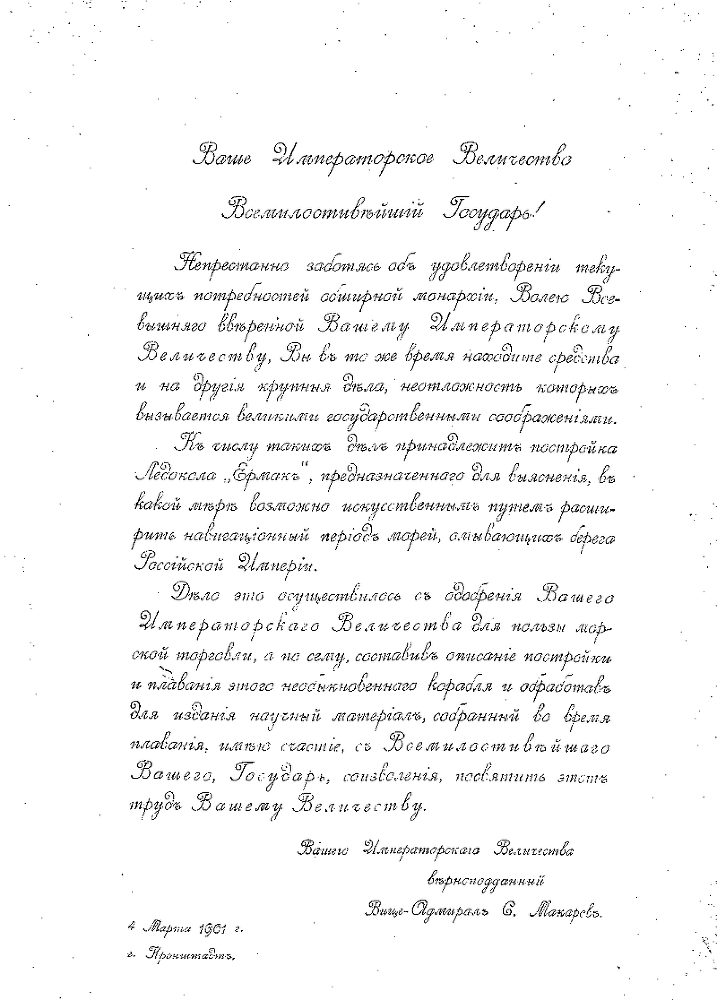 Ваше Императорское Величество
Всемилостивѣйшій Государь!
Непрестанно заботясь объ удовлетвореніи теку-
щихъ потребностей обширной монархіи, Волею Все-
вышняго ввѣренной Вашему Императорскому
Величеству, Вы въ то же время находите средства
и на другія крупныя дѣла, неотложность которыхъ
вызывается великими государственными соображеніями.
Къ числу такихъ дѣлъ принадлежитъ постройка
Ледокола „Ермакъ", предназначеннаго для выясненія, въ
какой мѣрѣ возможно искусственнымъ путемъ расши-
рить навигаціонный періодъ морей, омывающихъ берега
Россійской Имперіи.
Дѣло это осуществилось съ одобренія Вашего
Императорскаго Величества для пользы мор-
ской торговли, а по сему, составивъ описаніе постройки
и плаванія этого необыкновеннаго корабля и обработавъ
для изданія научный матеріалъ, собранный во время
плаванія, имѣю счастіе, съ Всемилостивѣйшаго
Вашего, Государь, соизволенія, посвятить этотъ
трудъ Вашему Величеству.
Вашего Императорскаго Величества
вѣрноподданный
Вице-Адмиралъ С. Макаровъ.
4 Марта 1901 г.
г. Кронштадтъ.